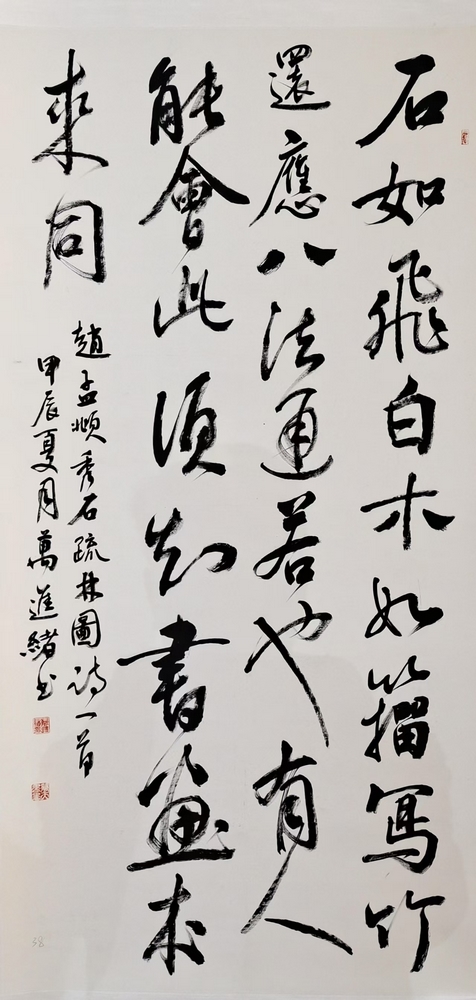 石如飛白木如籀寫竹
還應八法通若也有人
能會此須知書畫本
來同
趙孟頫秀石疏林圖詩一首
甲辰夏月萬進緒書
58